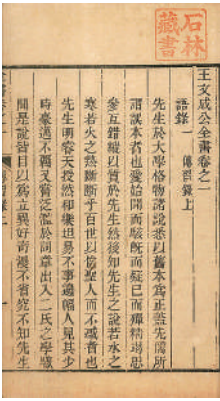 石林
藏書
王文成公全書卷之一
語錄一　傳習錄上
先生於大學格物諸說悉以舊本為正蓋先儒所
謂誤本者也愛始聞而駭既而疑已而殫精竭思
參互錯縱以質於先生然後知先生之說若水之
寒若火之熱斷斷乎百世以俟聖人而不惑者也
先生明睿天授然和樂坦易不事邊幅人見其少
時豪邁不羈又嘗泛濫於詞章出入二氏之學驟
聞是說皆目以為立異好奇漫不省究不知先生